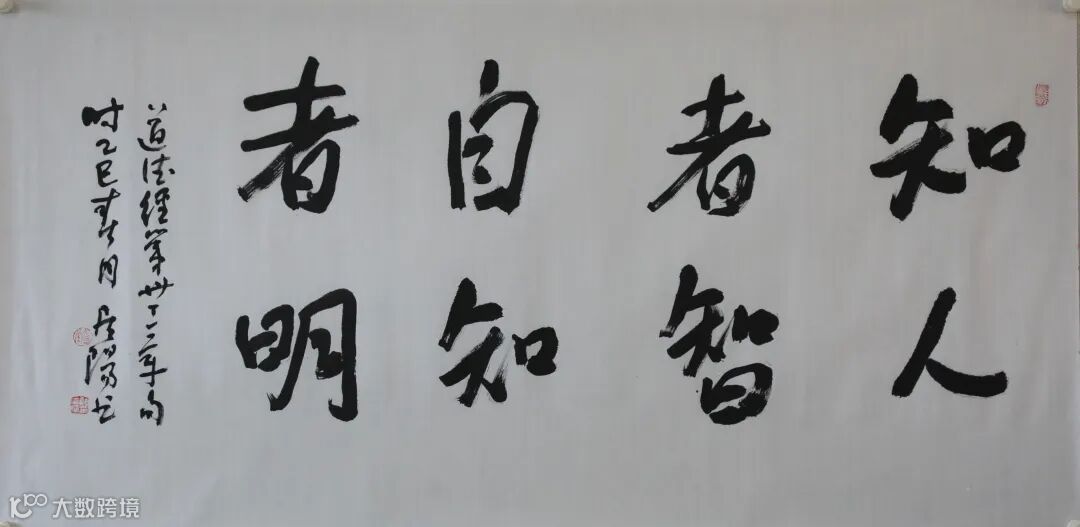 知人
者智
自知
者明
道德经第卅三章句
时乙巳春月 阳书
大数跨境